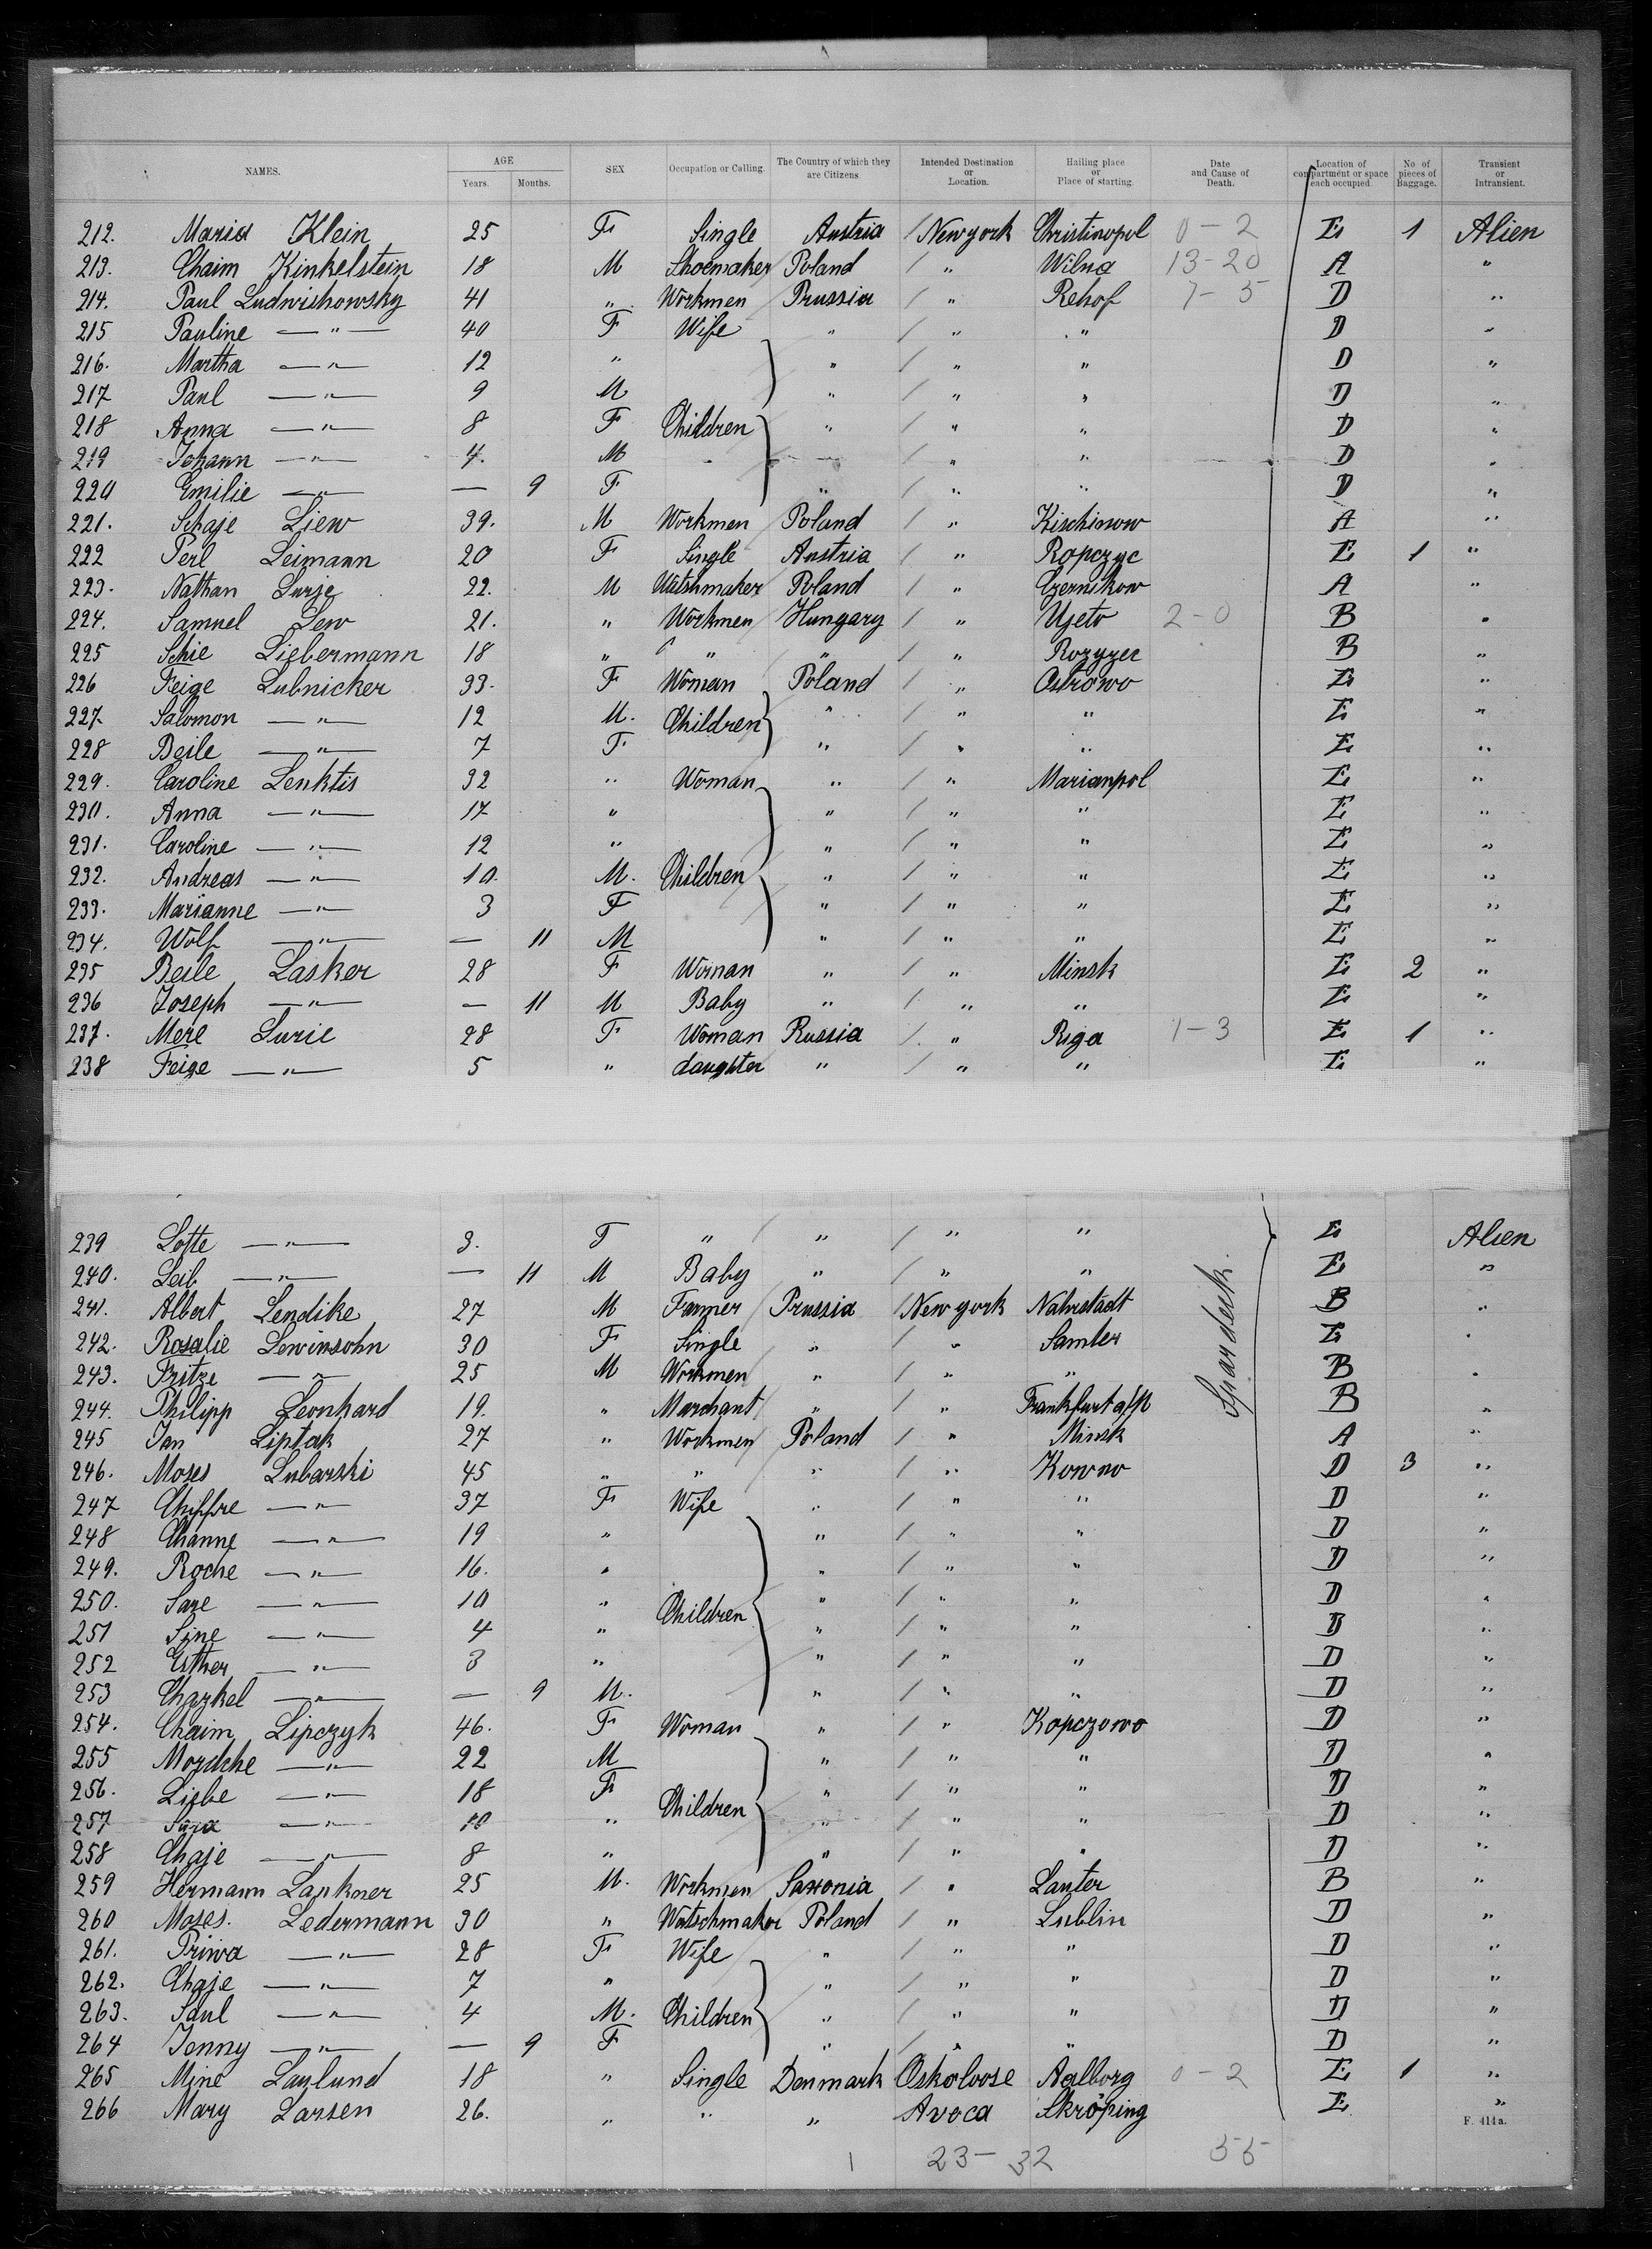 NAMES. AGE Years. Months. SEX Occupation or Calling. The Country of which they are Citizens. Intended Destination or Location. Hailing place or Place of starting. Date and Cause of Death. Location of compartment or space each occupied. No of pieces of Baggage. Transient or Intransient.
212. Maria Klein 25 F Single Austria / New york Christinopol 0-2 E 1 Alien
213. Chaim Kinkelstein 18 M Shoemaker Poland / " Wilna 13-20 A "
214. Paul Ludwishowsky 41 " Workmen Prussia / " Rehof 7-5 D "
215 Pauline —"— 40 F Wife " / " " D "
216. Martha —"— 12 " " / " " D "
217 Paul —"— 9 M " / " " D "
218 Anna —"— 8 F Children " / " " D "
219 Johann —"— 4. M " " / " " D "
220 Emilie —"— — 9 F " / " " D "
221. Schaje Liew 39. M Workmen Poland / " Kischinow A "
222 Perl Leimann 20 F Single Austria / " Ropczyc E 1 "
223. Nathan Lurje 22. M Watshmaker Poland / " Czernikow A "
224. Samuel Lew 21. " Workmen Hungary / " Ujeto 2-0 B "
225 Schie Liebermann 18 " " " / " Rozyzer B "
226 Feige Lubnicker 33. F Woman Poland / " Ostrowo E "
227 Salomon —"— 12 M. Children " / " " E "
228 Beile —"— 7 F " / " " E "
229. Caroline Lenktis 32 " Woman " / " Marianpol E "
230. Anna —"— 17 " " / " " E "
231. Caroline —"— 12 " " / " " E "
232. Andreas —"— 10. M. Children " / " " E "
233. Marianne —"— 3 F " / " " E "
234. Wolf —"— — 11 M " / " " E "
235 Beile Lasker 28 F Woman " / " Minsk E 2 "
236 Joseph —"— — 11 M Baby " / " " E "
237. Mere Lurie 28 F Woman Russia / " Riga 1-3 E 1 "
238 Feige —"— 5 " daughter " / " " E "
239 Lotte —"— 3. F " " / " " E Alien
240. Leib —"— — 11 M Baby " / " " E "
241. Albert Lendike 27 M Farmer Prussia / New york Nahrstadt B "
242. Rosalie Lewinsohn 30 F Single " / " Samter E "
243. Fritze —"— 25 M Workmen " / " " B "
244. Philipp Leonhard 19. " Marchant " / " Frankfurt a/M B "
245 Jan Liptak 27 " Workmen Poland / " Minsk A "
246. Moses Lubarski 45 " " " / " Kowno D 3 "
247 Chiffre —"— 37 F Wife " / " " D "
248 Channe —"— 19 " " / " " D "
249. Roche —"— 16. " " / " " D "
250. Sare —"— 10 " Children " / " " D "
251 Sine —"— 4 " " / " " D "
252 Esther —"— 3 " " / " " D "
253 Chazkel —"— — 9 M. " / " " D "
254. Chaim Lipczyk 46. F Woman " / " Kopczowo D "
255 Mordche —"— 22 M " / " " D "
256. Liebe —"— 18 F " / " " D "
257 —"— 10 " Children " / " " D "
258 Chaje —"— 8 " " / " " D "
259 Hermann Lankner 25 M. Workmen Saxonia / " Lauter B "
260 Moses. Ledermann 30 " Watschmaker Poland / " Lublin D "
261. Priwa —"— 28 F Wife " / " " D "
262. Chaje —"— 7 " " / " " D "
263. Saul —"— 4 M. Children " / " " D "
264 Jenny —"— — 9 F " / " " D "
265 Mine Laulund 18 " Single Denmark Oskoloose Aalborg 0-2 E 1 "
266 Mary Larsen 26. " " " Avoca Skröping E "
F. 414a.
1 23-32 55